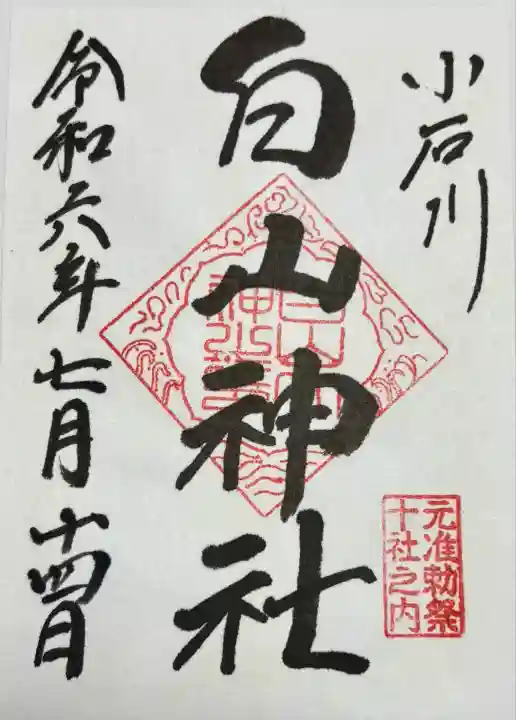 小石川
白山神社
令和六年七月十四日
元准勅祭
十社之内